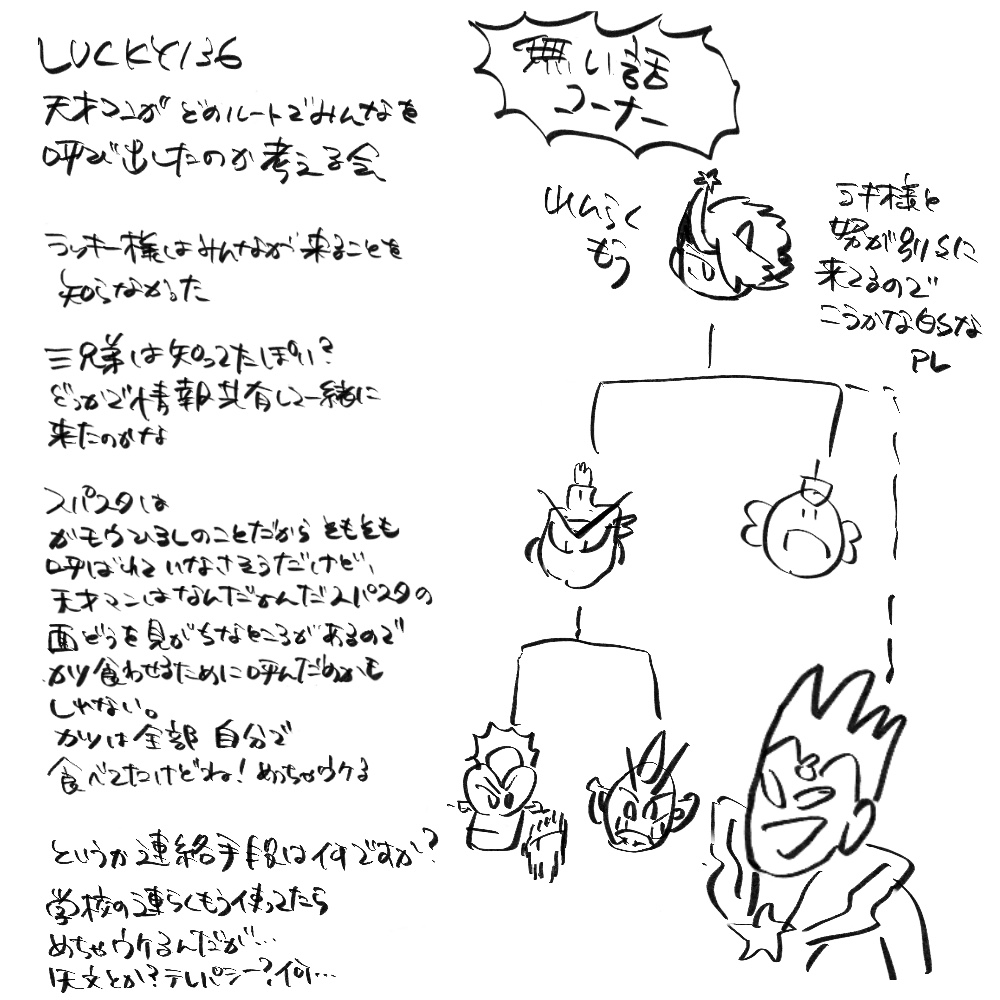 LUCKY136
天才マンがどのルートでみんなを
呼び出したのか考える会
ラッキー様はみんなが来ることを
知らなかった
三兄弟は知ってたぽい?
どっかで情報共有して一緒に
来たのかな
スパスタは
ガモウひろしのことだからそもそも
呼ばれていなさそうだけど、
天才マンはなんだかんだスパスタの
面どうを見がちなところがあるので
カツ食わせるために呼んだのかも
しれない。
カツは全部自分で
食べてたけどね!めっちゃウケる
というか連絡手段は何ですか?
学校の連らくもう使ってたら
めちゃウケるんだが…
矢文とか?テレパシー?何…
無い話
コーナー
れんらく
もう
ラキ様と
努が別々に
来てるので
こうかな的な